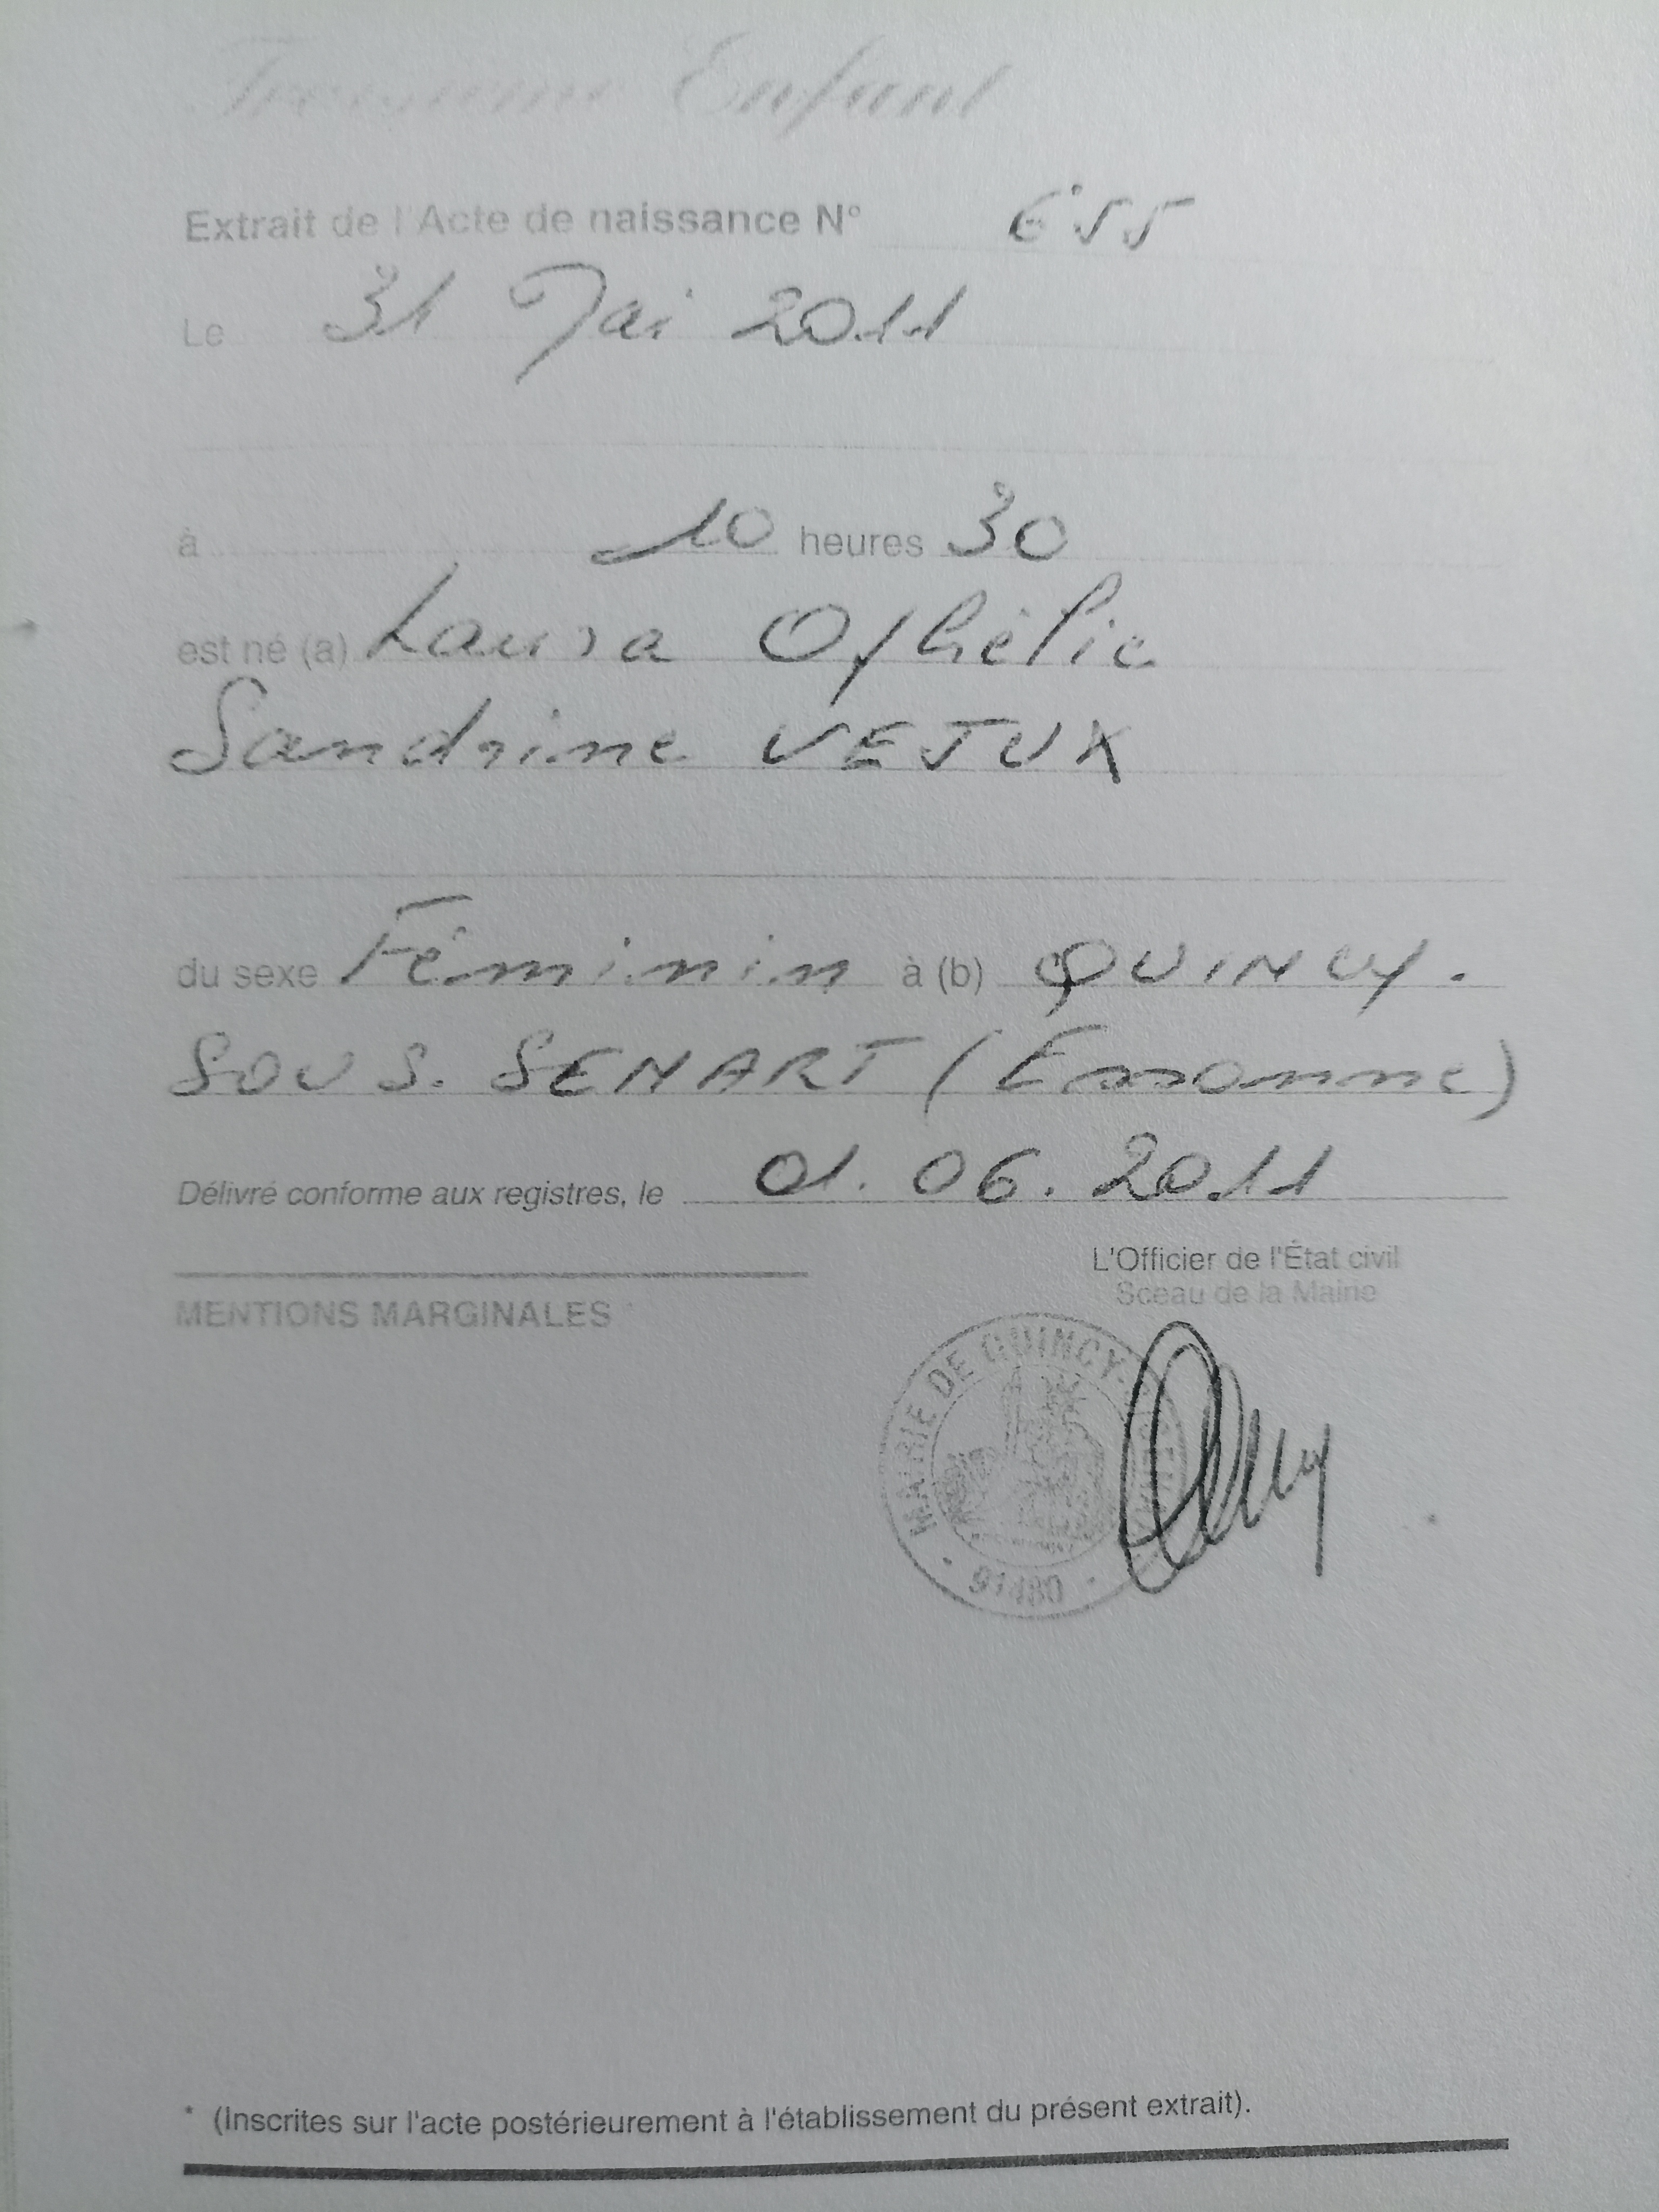 Troisième Enfant
Extrait de l'Acte de naissance N° 655
Le 31 Mai 2011
à 10 heures 30
est né (a) Laura Ophélie
Sandrine VEJUX
du sexe Féminin à (b) QUINCY.
SOUS. SENART (Essonne)
Délivré conforme aux registres, le 01. 06. 2011
L'Officier de l'État civil
Sceau de la Mairie
MENTIONS MARGINALES *
MAIRIE DE QUINCY
91480
* (Inscrites sur l'acte postérieurement à l'établissement du présent extrait).